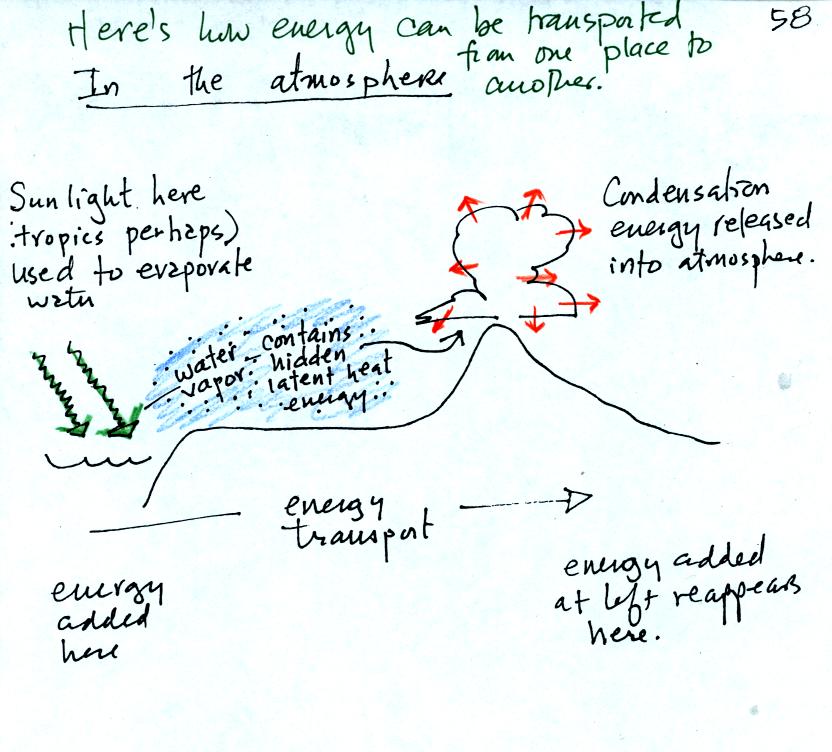 Here's how energy can be transported
58
from one place to
In the atmosphere
another.
Sunlight here
(tropics perhaps)
used to evaporate
water
Condensation
energy released
into atmosphere.
water
vapor
contains
hidden
latent heat
energy
energy
transport
energy
added
here
energy added
at left reappears
here.